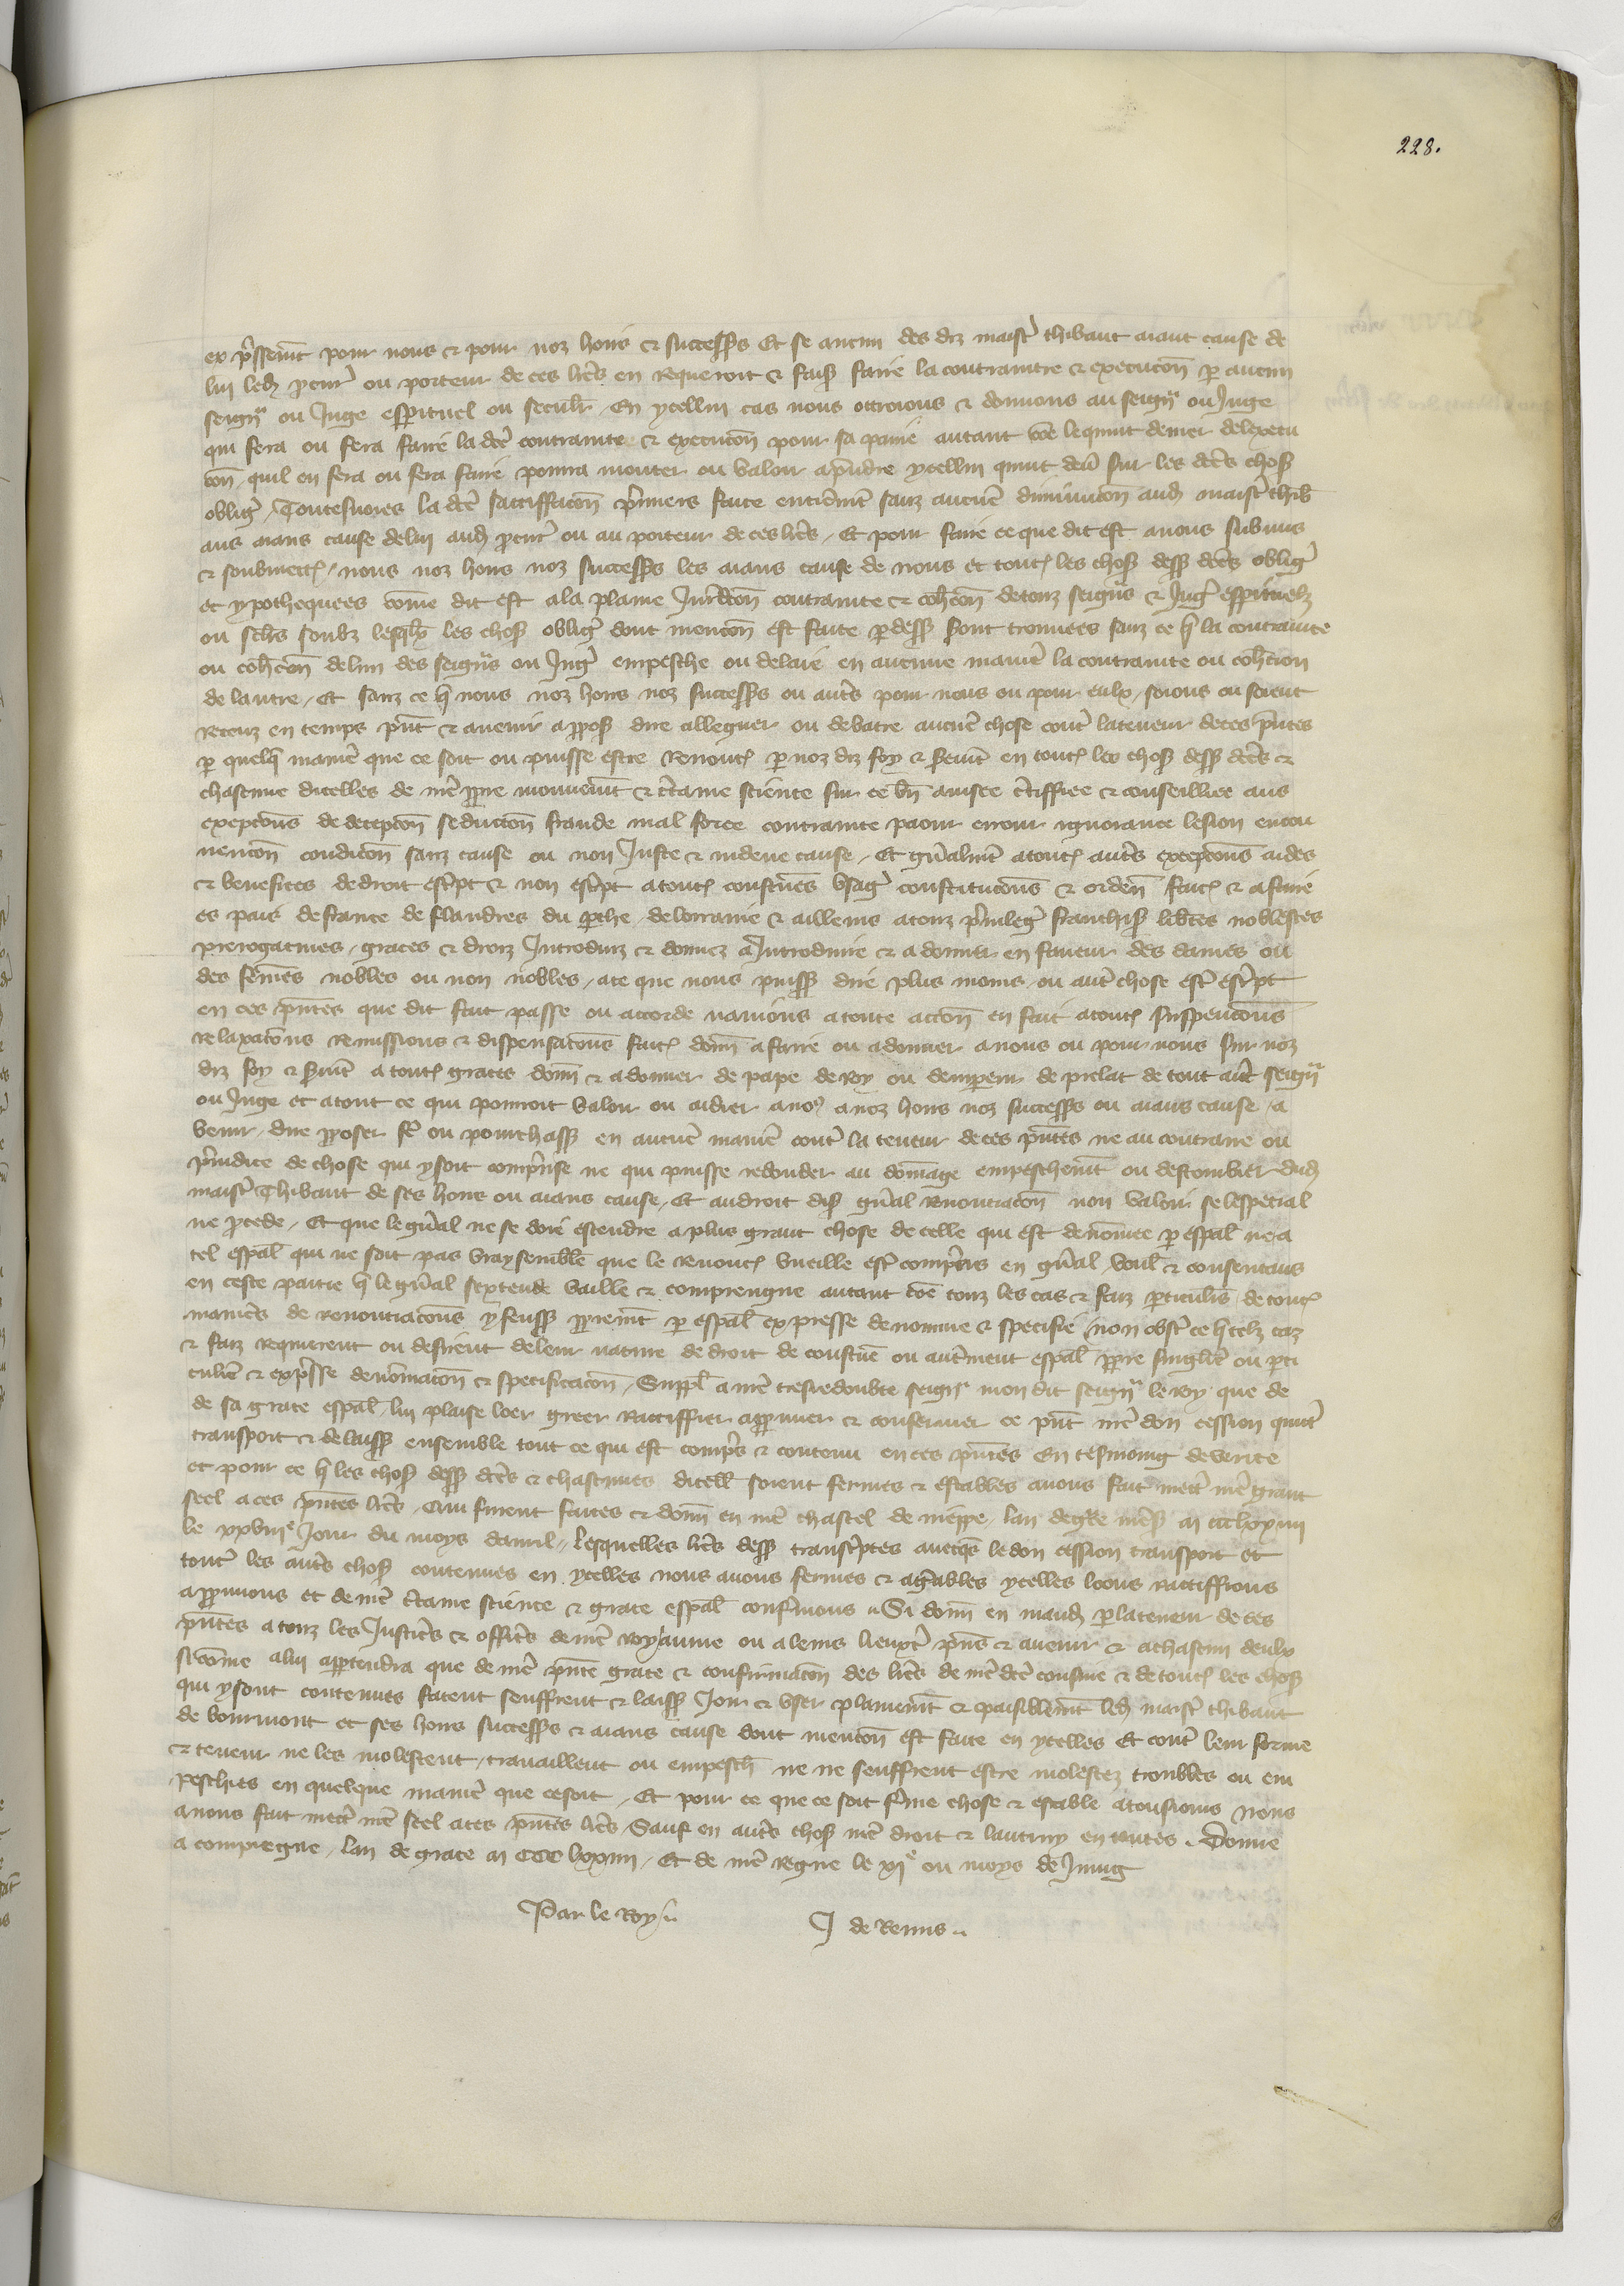 228.
ex p̃ssemt̃ pour nous & pour noz hoirs & success̃s Et se aucun des diz maist̃ thibaut aiant cause de
lui led̃ pcur̃ ou porteur de ces lr̃es en requeroit & fais̃ faire la contrainte & execucion̄ p aucun
seign̄r ou Juge esp̃ituel ou seculr̃ En ycellui cas nous ottroions & donnons au seign̄r ou Juge
qui fera ou fera faire la dc̃e contrainte & execucion̄ pour sa paine autant cõe le quint denier delexecu
cion̄ quil en fera ou fera faire pourra monter ou valoir a p̃ndre ycellui quint den̄ sur les dc̃es chos̃
oblig̃ Toutesuoies la dc̃e sattiffaccion̄ p̃miers faite entierem̃t sanz aucun̄e diminucion̄ aud̃ maist̃ thib
aus aians cause de lui aud̃ pcur̃ ou au porteur de ces lr̃es / Et pour faire ce que dit est auons subnus
& soubmectt̃ / nous noz hoirs noz success̃s les aians cause de nous et tout̃ les chos̃ dess̃ dc̃es oblig̃
et ypothequees cõme dit est a la plaine Jurid̃con̄ contrainte & coh̃con̄ de touz seign̄rs & Jug̃ esp̃rituelz
ou sclr̃s soubz lesq̃lx les chos̃ oblig̃ dont mencion̄ est faite p dess̃ sont trouuees sanz ce q̃ la contrainte
ou coh̃con̄ de lun des seign̄rs ou Jug̃ empesche ou delaie en aucune manier̃ la contrainte ou coh̃cion
de lautre / Et sanz ce q̃ nous noz hoirs noz success̃s ou aut̃s pour nous ou pour eulx / soions ou soient
Receuz en temps p̃nt & auenir a ppos̃ dire alleguer ou debatre aucun̄e chose cont̃ la teneur de ces p̃ntes
p quelq̃ manier̃ que ce soit ou puisse estre Renonct̃ p noz diz foy & serm̃t en tout̃ les chos̃ dess̃ dc̃es &
chascune dicelles de nr̃e ppre mouuem̃t & c̃taine science sur ce bn̄ auisee c̃tiffiee & conseilliee aus
excepcion̄s de decepcion̄ seduccion̄ fraude mal force contrainte paour erreur ignorance lesion encou
uencion̄ condicion̄ sanz cause ou non Juste & indeue cause / Et gñalm̃t a tout̃ aut̃s excepcion̄s aides
& benefices de droit esc̃pt & non esc̃pt a tout̃ coustum̃s vsag̃ constitucion̄s & orden̄ fait̃ & a faire
es pais de france de flandres du pche de lorraine & ailleurs a touz p̃uileg̃ franchis̃ lib̃tes noblesces
prerogatiues / graces & droiz Introduiz & donnez a Introduire & a donner en faueur des dames ou
des fem̃es nobles ou non nobles / a ce que nous puiss̃ dire plus moins / ou aut̃ chose est̃ esc̃pt
en ces p̃ntes que dit fait passe ou accorde nauions a toute accion̄ en fait a tout̃ suspencion̄s
relaxacion̄s remissions & dispensacion̄s fait̃ don̄n a faire ou a donner a nous ou pour nous sur noz
diz foy & serm̃t a tout̃ graces don̄n & a donner de pape de Roy ou demp̃eur de prelat de tout aut̃ seign̄r
ou Juge et a tout ce qui pourroit valoir ou aidier a nõ a noz hoirs noz success̃s ou aians cause / a
venir / dire pposer fe̾ ou pourchass̃ en aucun̄e manier̃ cont̃ la teneur de ces p̃ntes ne au contraire ou
p̃iudice de chose qui y soit comp̃nse ne qui puisse redonder au dom̃age empeschem̃t ou destourbier dud̃
maist̃ Thibaut de ses hoirs ou aians cause / Et au droit dis̃ gñal Renonciacion̄ non valoir se lespecial
ne p̃cede / Et que le gñal ne se doie estendre a plus grant chose de celle qui est denom̃ee p esp̃al ne a
tel esp̃al qui ne soit pas vraysemblẽ que le Renonct̃ vueille est̃ comp̃ris en gñal / voul̃ & consentans
en ceste partie q̃ le gñal sextende vaille & comprengne autant cõe touz les cas & faiz p̃ticulirs̃ de tout̃
manier̃s de Renonciacion̄s y feuss̃ pprem̃t p esp̃al expresse denommé & specifie non obst̃ ce q̃ telz caz
& faiz requierent ou desirent de leur nature de droit de coustum̃e ou autrement esp̃al ppre singulier̃ ou pti
culier̃ & exp̃sse denom̃acion̄ & specificacion̄ / Suppl̃ a nr̃e tresredoubte seign̄r mon dit seign̄r le Roy que de
de sa grace esp̃al / lui plaise loer greer Rattiffier approuuer & confermer ce p̃nt nr̃e don cession quitt̃
transport & delaiss̃ ensemble tout ce qui est comp̃s & contenu en ces p̃ntes En tesmoing de verite
et pour ce q̃ les chos̃ dess̃ dc̃es & chascunes dicell̃ soient fermes & estables auons fait mett̃ nr̃e grant
seel a ces p̃ntes lr̃es / Qui furent faites & don̄n en nr̃e chastel de nieppe / lan de gr̃ce nr̃es̃ m ccclxxiiii
le xxviije Jour du moys dauril / Lesquelles lr̃es dess̃ transc̃ptes auecq̃s le don cession transport et
tout̃ les aut̃s chos̃ contenues en ycelles nous auons fermes & aggr̃ables ycelles loons rattiffions
approuuons et de nr̃e c̃taine science & grace esp̃al conf̃mons .. Si don̄n en mand̃ p la teneur de ces
p̃ntes a touz les Justicier̃s & officier̃s de nr̃e royaume ou a leurs lieuxten̄ p̃ns & auenir & a chascun deulx
si cõme a lui appertendra que de nr̃e p̃nte grace & confirmacion̄ des lr̃es de nr̃e dc̃e cousine & de tout̃ les chos̃
qui y sont contenues facent seuffrent & laiss̃ Joir & vser plainem̃t & paisiblem̃t led̃ maist̃ thibaut
de bourmont et ses hoirs success̃s & aians cause dont mencion̄ est faite en ycelles Et cont̃ leur forme
& teneur ne les molestent / trauaillent ou empesch̃ ne ne seuffrent estre molestez troublés ou em
peschiés en quelque manier̃ que ce soit / Et pour ce que ce soit f̃me chose & estable a tousiours nous
auons fait mett̃ nr̃e seel a ces p̃ntes lr̃es Sauf en aut̃s chos̃ nr̃e droit & lautruy en toutes . Donne
a compiegne / lan de grace m ccc lxxiiii / Et de nr̃e Regne le xje ou moys de Juing
Par le Roy ..
J de Reins ..